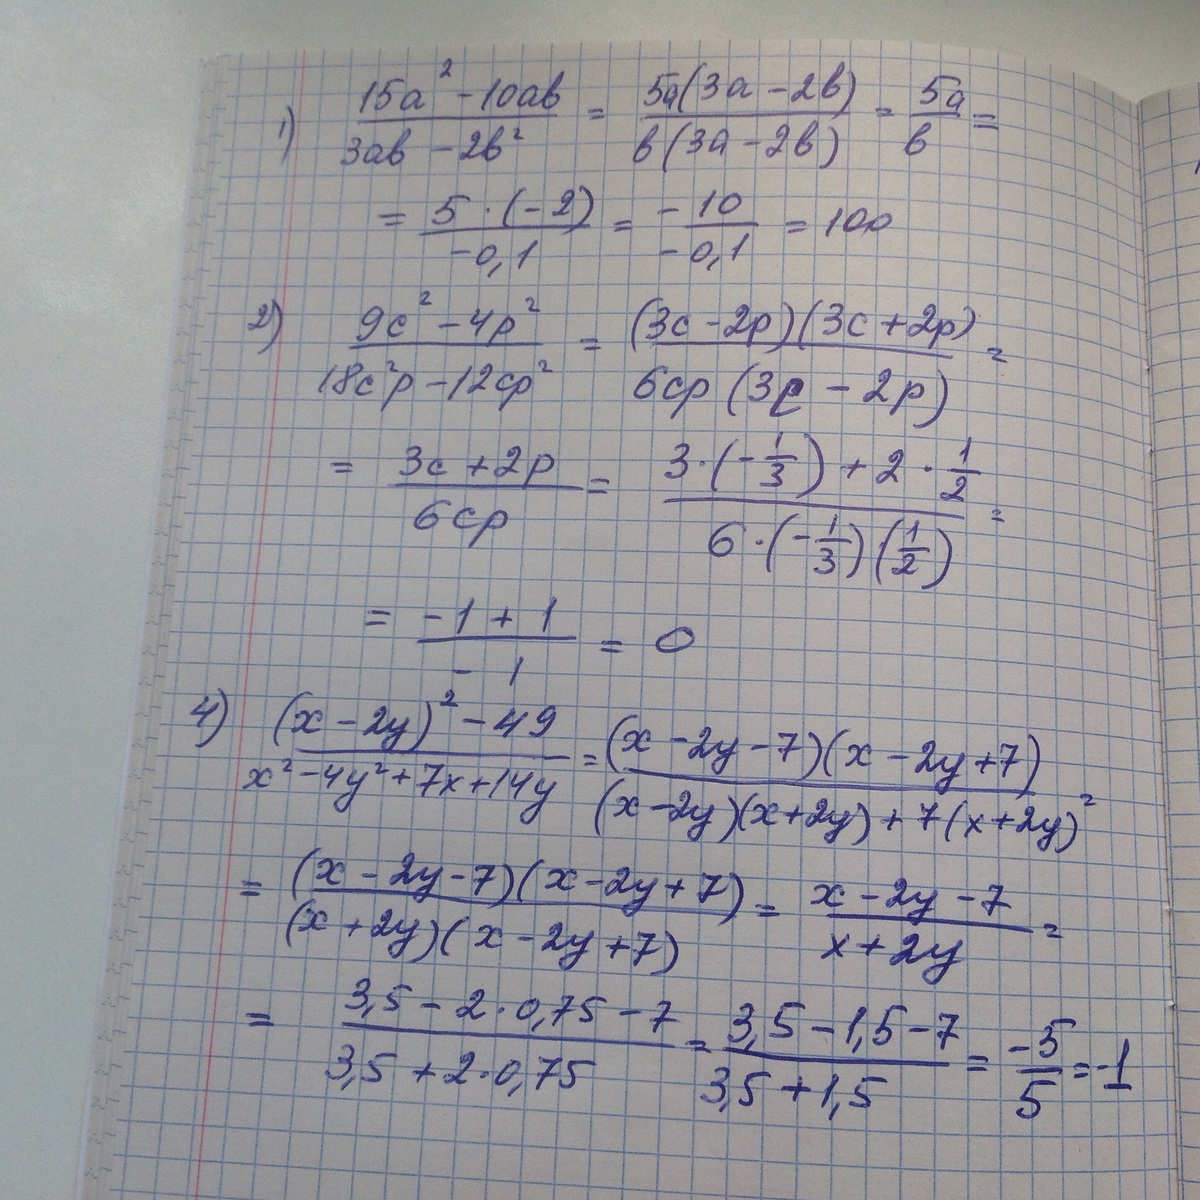 1) (15a² - 10ab)/(3ab - 2b²) = 5a(3a - 2b)/b(3a - 2b) = 5a/b =
= 5 · (-2)/-0,1 = -10/-0,1 = 100
2) (9c² - 4p²)/(18c²p - 12cp²) = (3c - 2p)(3c + 2p)/6cp(3c - 2p) =
= (3c + 2p)/6cp = (3 · (-1/3) + 2 · 1/2)/(6 · (-1/3)(1/2)) =
= (-1 + 1)/-1 = 0
4) ((x - 2y)² - 49)/(x² - 4y² + 7x + 14y) = (x - 2y - 7)(x - 2y + 7)/((x - 2y)(x + 2y) + 7(x + 2y)) =
= (x - 2y - 7)(x - 2y + 7)/(x + 2y)(x - 2y + 7) = (x - 2y - 7)/(x + 2y) =
= (3,5 - 2 · 0,75 - 7)/(3,5 + 2 · 0,75) = (3,5 - 1,5 - 7)/(3,5 + 1,5) = -5/5 = -1